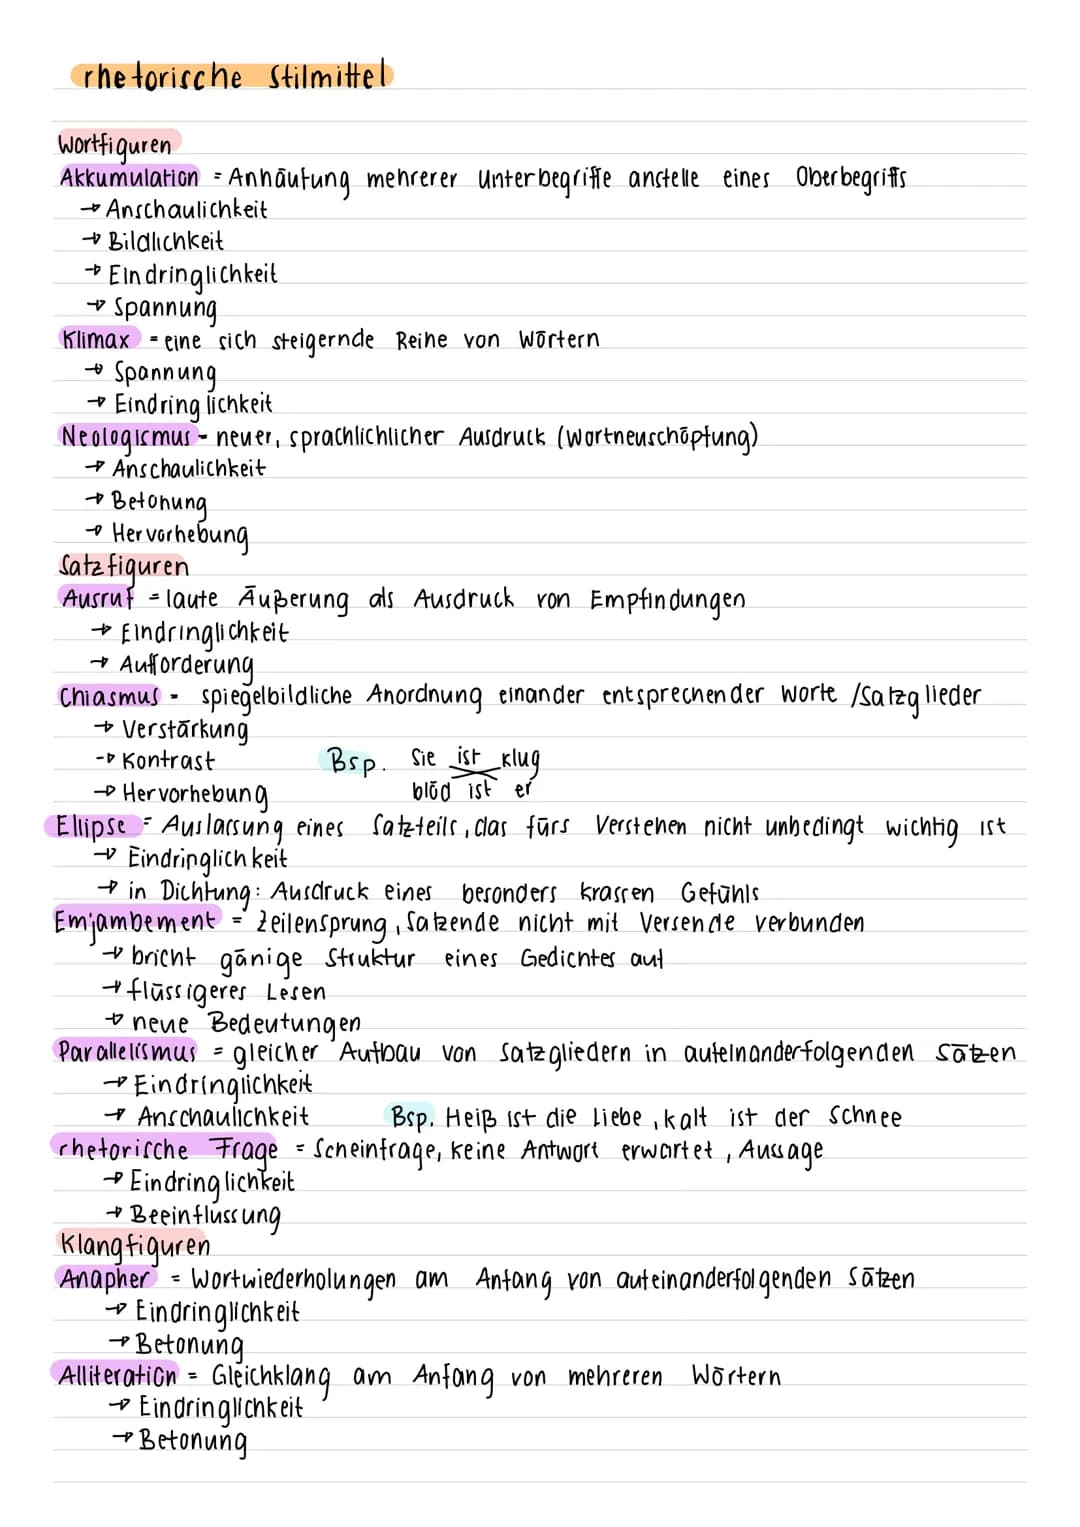 rhetorische Stilmittel
Wortfiguren
Akkumulation = Anhäufung mehrerer Unterbegriffe anstelle eines Oberbegriffs
→ Anschaulichkeit
→ Bildlichkeit
→ Eindringlichkeit
→ Spannung
Klimax = eine sich steigernde Reihe von Wörtern
→ Spannung
→ Eindringlichkeit
Neologismus - neuer, sprachlichlicher Ausdruck (Wortneuschöpfung)
→ Anschaulichkeit
→ Betonung
→ Hervorhebung
Satzfiguren
Ausruf = laute Äußerung als Ausdruck von Empfindungen
→ Eindringlichkeit
→ Aufforderung
Chiasmus - spiegelbildliche Anordnung einander entsprechender Worte /Satzglieder
→ Verstärkung
→ Kontrast Bsp. Sie ist klug
→ Hervorhebung blöd ist er
Ellipse = Auslassung eines Satzteils, das fürs Verstehen nicht unbedingt wichtig ist
→ Eindringlichkeit
→ in Dichtung: Ausdruck eines besonders krassen Gefühls
Emjambement = Zeilensprung, Satzende nicht mit Versende verbunden
→ bricht gänige Struktur eines Gedichtes auf
→ flüssigeres Lesen
→ neue Bedeutungen
Parallelismus = gleicher Aufbau von Satzgliedern in aufeinanderfolgenden Sätzen
→ Eindringlichkeit
→ Anschaulichkeit Bsp. Heiß ist die Liebe, kalt ist der Schnee
rhetorische Frage = Scheinfrage, keine Antwort erwartet, Aussage
→ Eindringlichkeit
→ Beeinflussung
Klangfiguren
Anapher = Wortwiederholungen am Anfang von aufeinanderfolgenden Sätzen
→ Eindringlichkeit
→ Betonung
Alliteration = Gleichklang am Anfang von mehreren Wörtern
→ Eindringlichkeit
→ Betonung